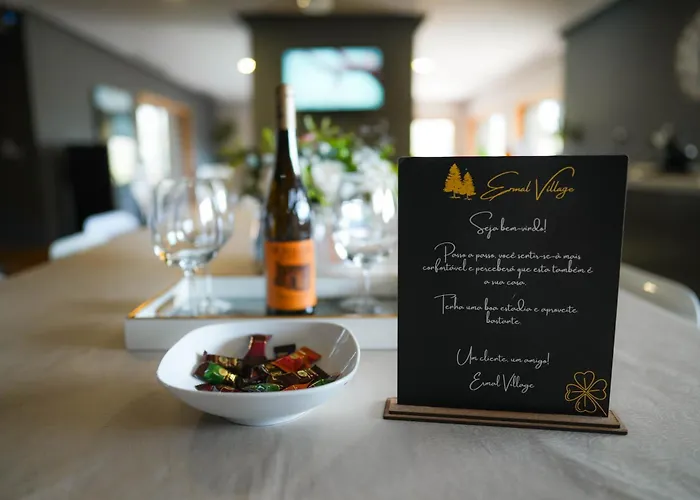 Ermal Village
Seja bem-vindo!
Passo a passo, você sentir-se-á mais
confortável e perceberá que esta também é
a sua casa.
Tenha uma boa estadia e aproveite
bastante.
Um cliente, um amigo!
Ermal Village